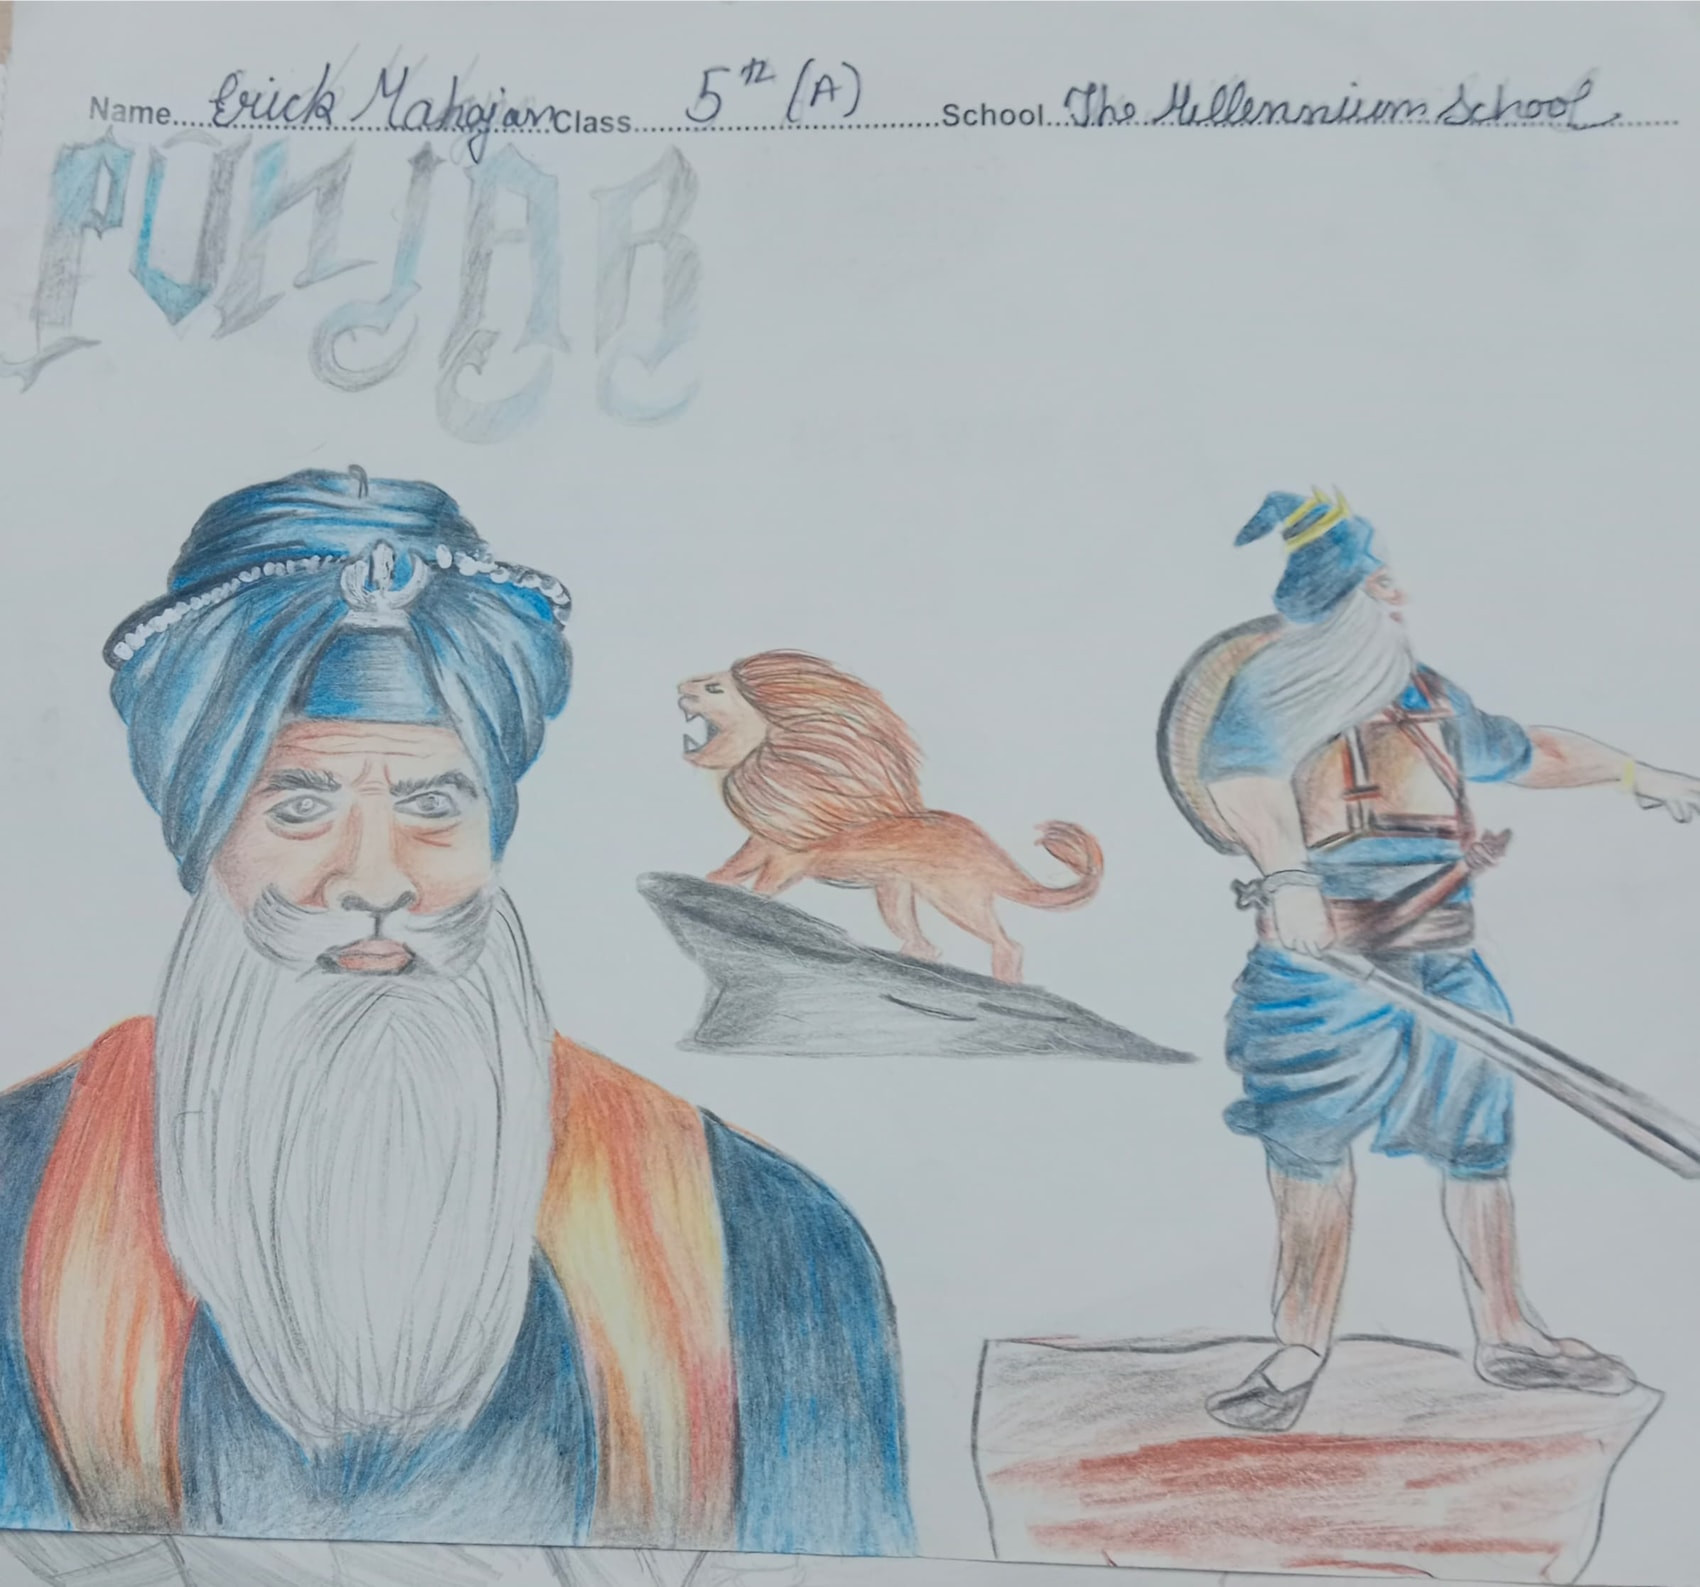 Name....Erick Mahajan Class....5th (A)....School....The Millennium School
PUNJAB